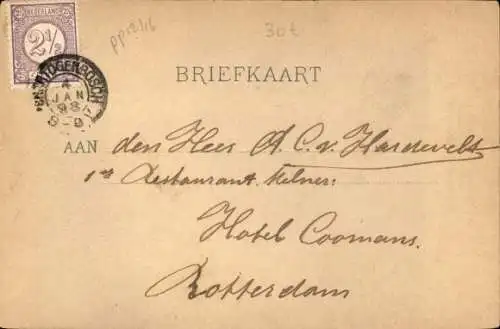 NEDERLAND
2 1/2
'S HERTOGENBOSCH
4
JAN
98
8-9
30t
BRIEFKAART
AAN den Heer A. C. v. Hardevelt
1ste Restaurant Kelner.
Hotel Coomans.
Rotterdam